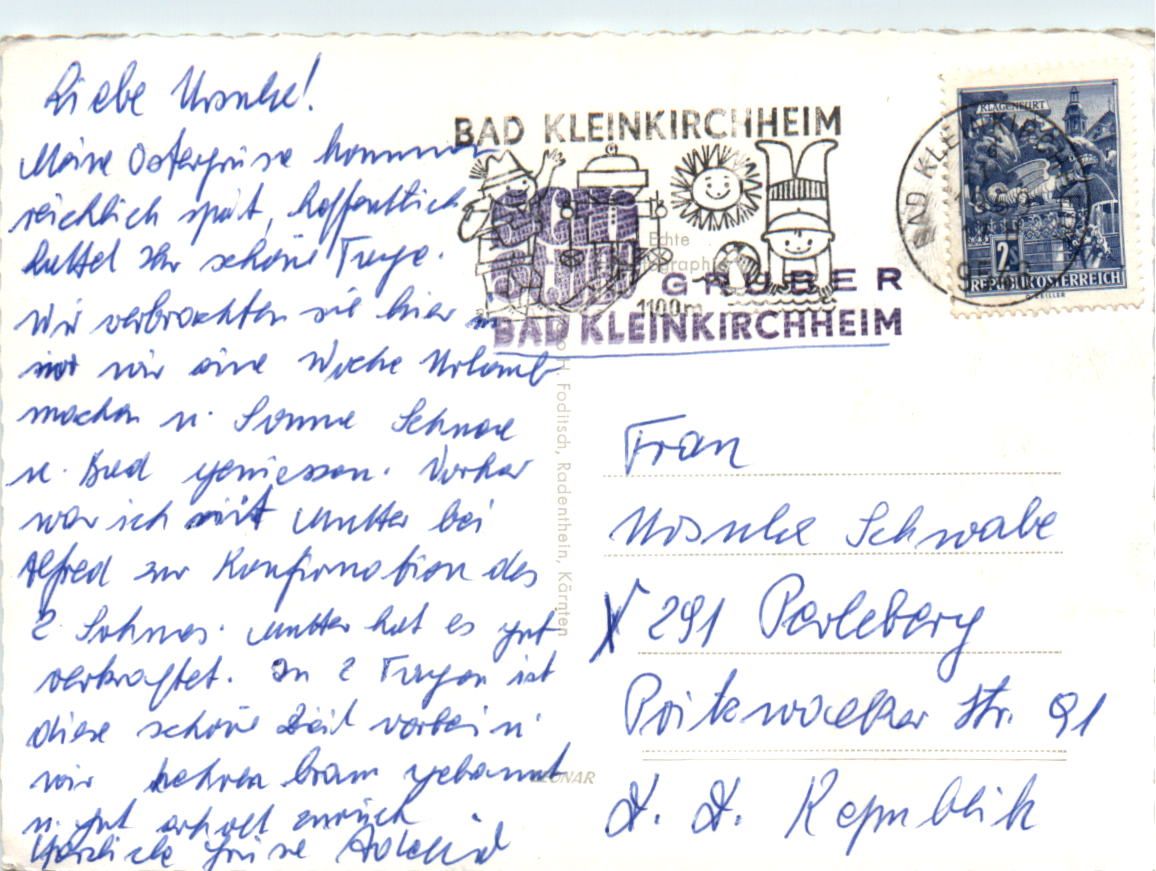 Liebe Ursula!
Meine Ostergrüsse kommen
reichlich spät, hoffentlich
hattet Ihr schöne Tage.
Wir verbrachten sie hier
wo wir eine Woche Urlaub
machen u. Sonne Schnee
u. Bad geniessen. Vorher
war ich mit Mutter bei
Alfred zur Konfirmation des
2. Sohnes. Mutter hat es gut
verkraftet. In 2 Tagen ist
diese schöne Zeit vorbei u.
wir kehren braun gebrannt
u. gut erholt zurück
Herzliche Grüsse
BAD KLEINKIRCHHEIM
Echte
GRUBER
1100m
BAD KLEINKIRCHHEIM
H. Foditsch, Radenthein, Kärnten
KLAGENFURT
2S
REPUBLIK ÖSTERREICH
BAD KLEINKIRCHHEIM
Frau
Ursula Schwabe
X 291 Perleberg
Pritzwalker Str. 91
D. D. Republik